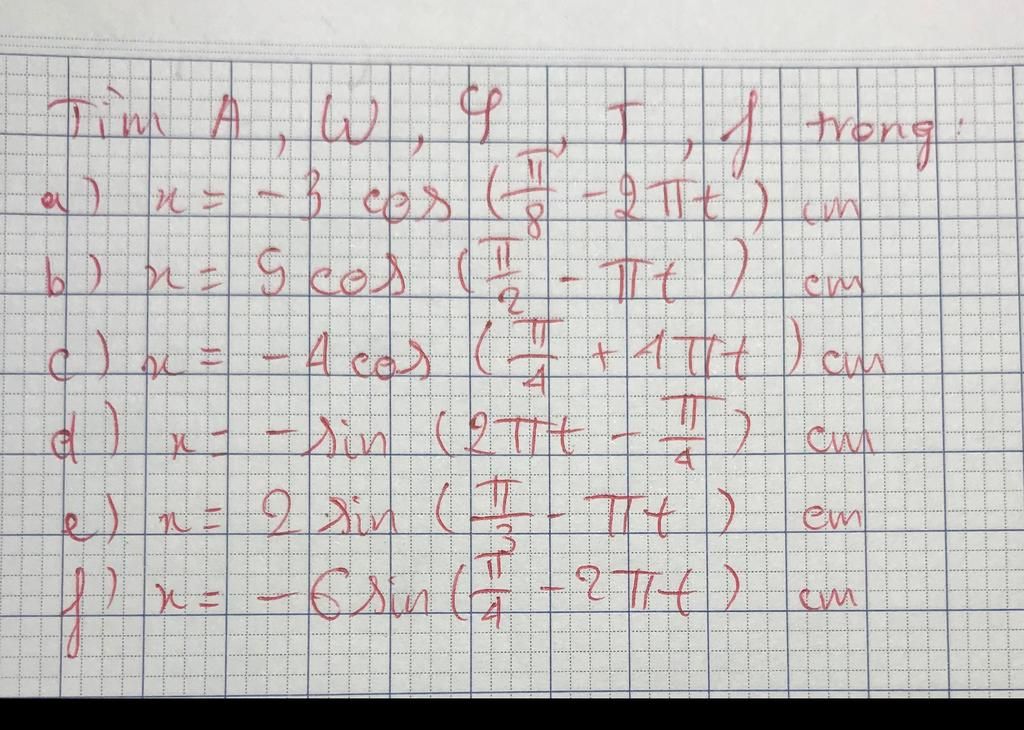 Tìm A, W, φ, T, f trong:
a) x = -3 cos (π/8 - 2πt) cm
b) x = 5 cos (π/2 - πt) cm
c) x = -4 cos (π/4 + 4πt) cm
d) x = -sin (2πt - π/4) cm
e) x = 2 sin (π/3 - πt) cm
f) x = -6 sin (π/4 - 2πt) cm